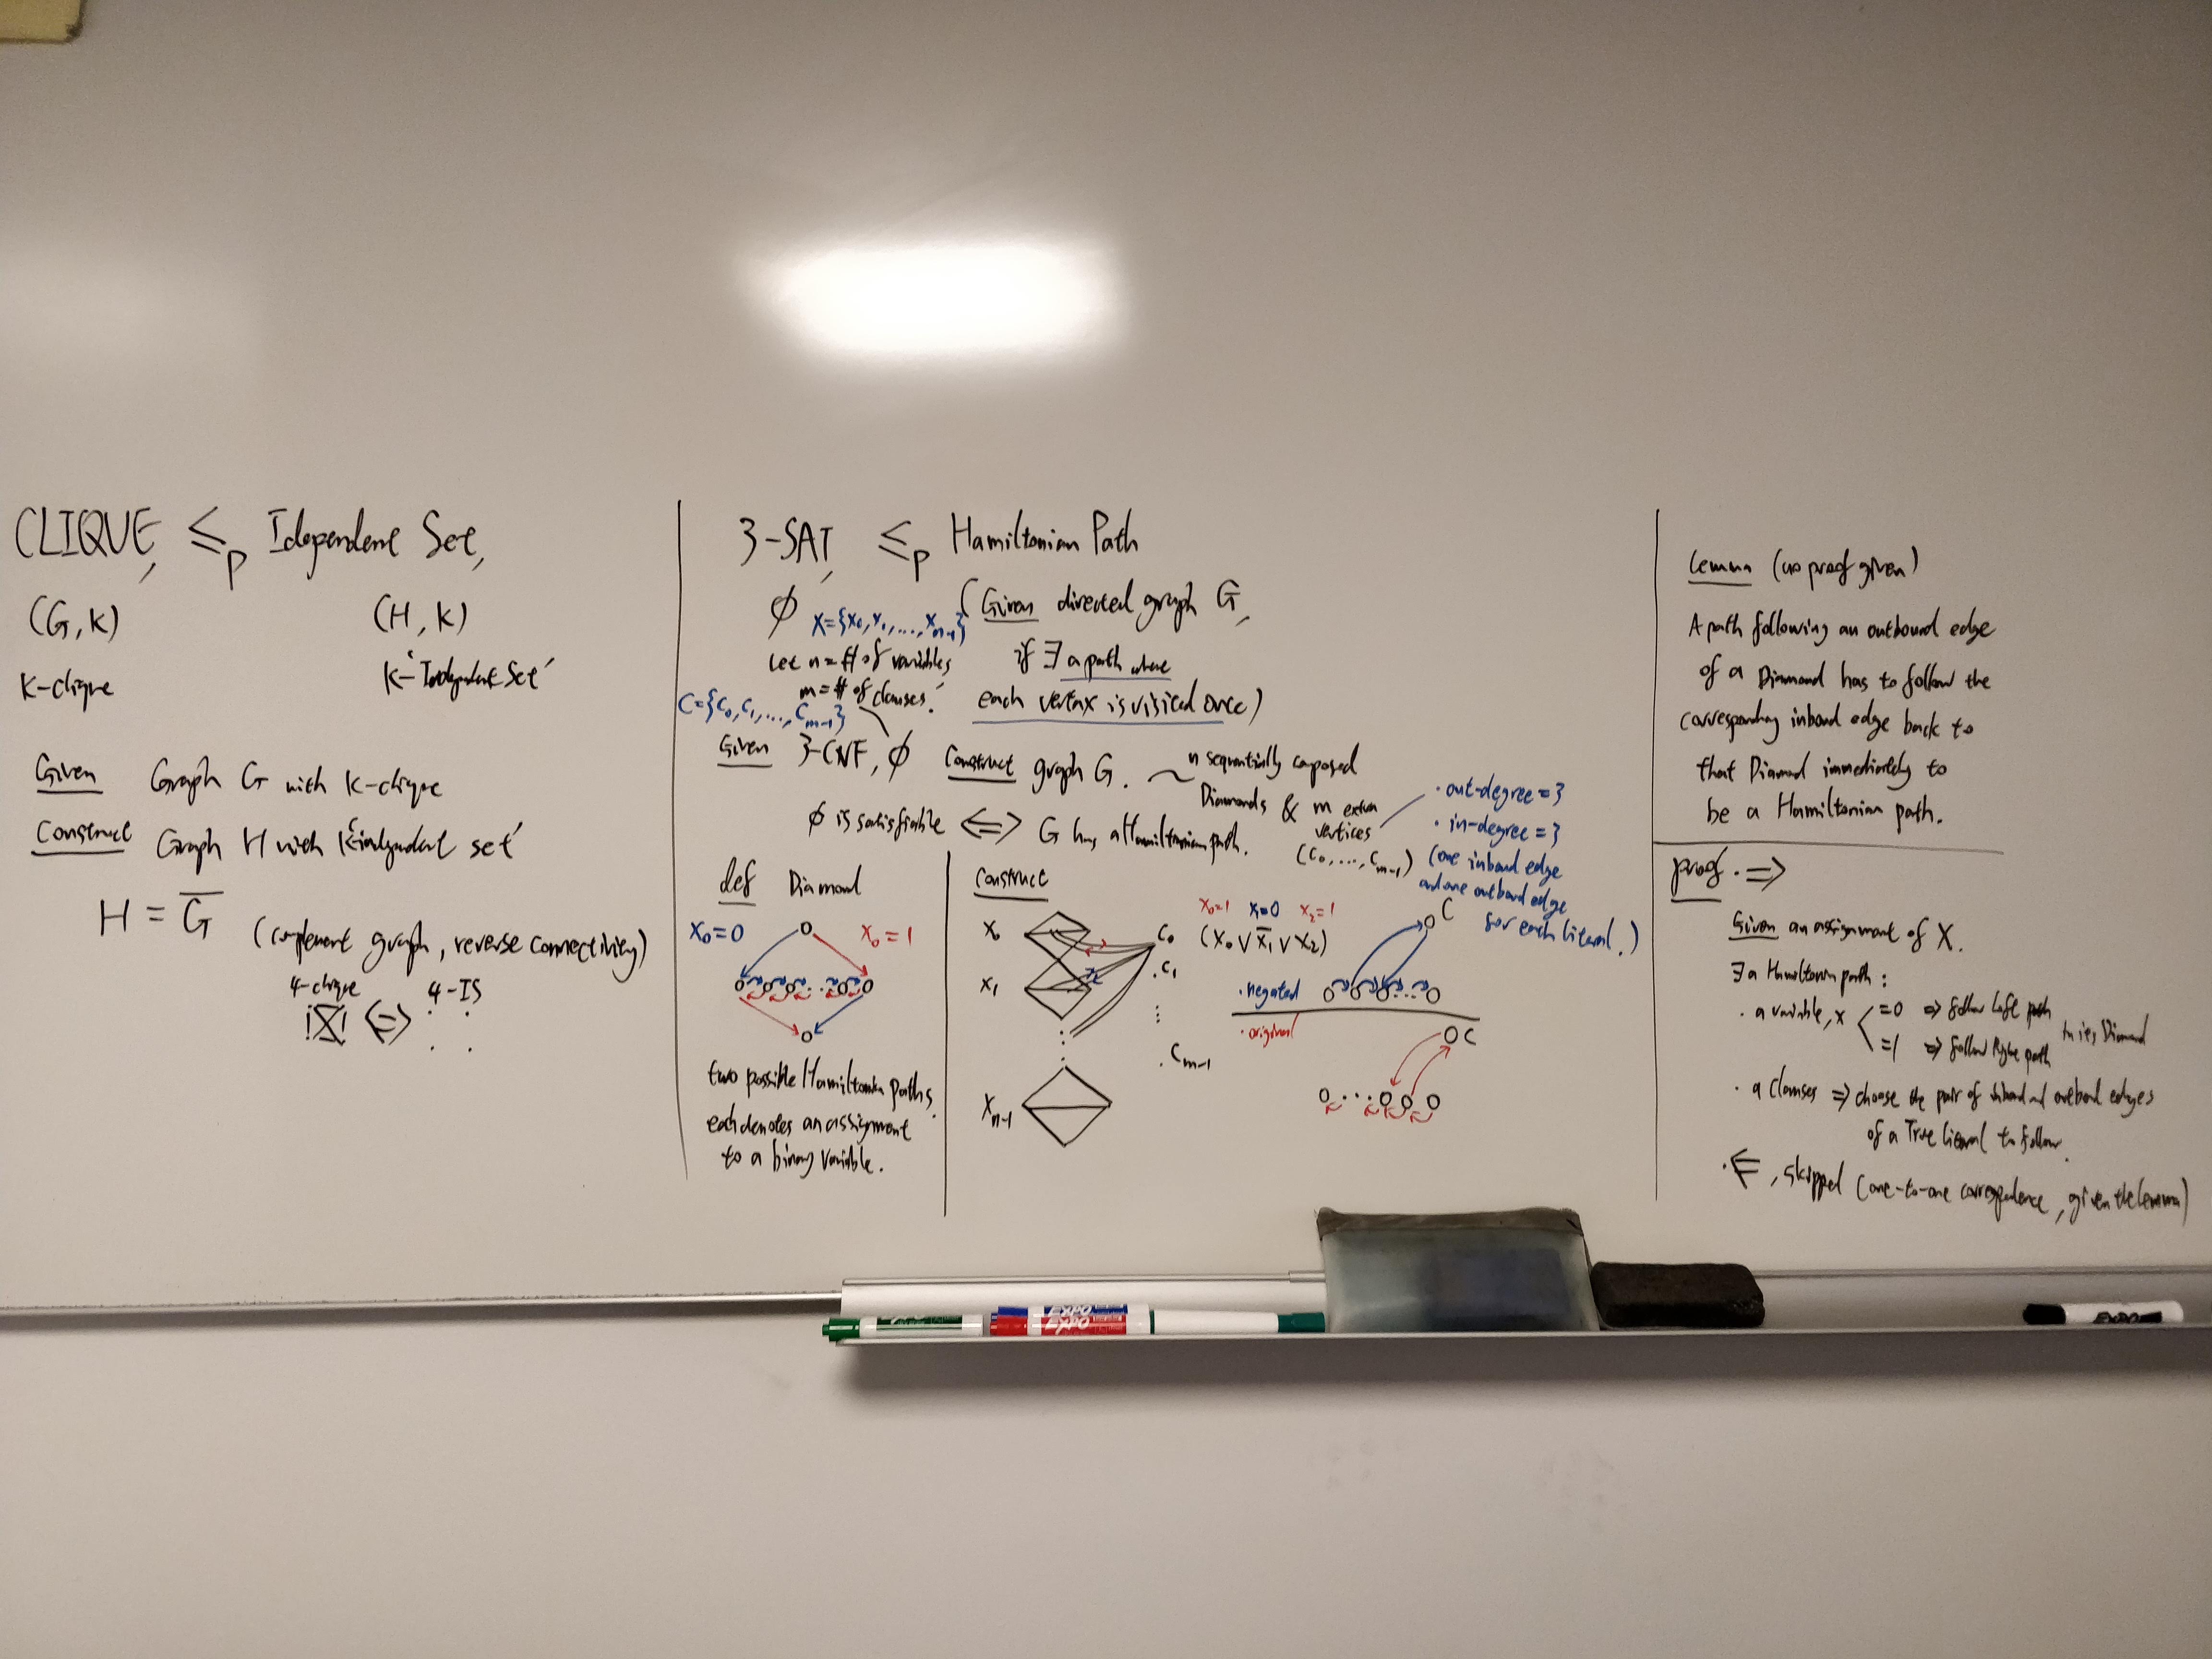 CLIQUE, ≤p Idependent Set,
(G, k) (H, k)
k-clique k-'Independent Set'
Given Graph G with k-clique
Construct Graph H with k'independent set'
H = G̅
(complement graph, reverse connectivity)
4-clique 4-IS
⟺
3-SAT, ≤p Hamiltonian Path
ϕ
X={x₀,x₁,...,xₙ₋₁}
let n = # of variables
m = # of clauses.
C={C₀,C₁,...,Cₘ₋₁}
(Given directed graph G,
if ∃ a path where
each vertex is visited once)
Given 3-CNF, ϕ Construct graph G. ~ n sequentially composed
Diamonds & m extra
vertices
(C₀,...,Cₘ₋₁)
ϕ is satisfiable ⟺ G has a Hamiltonian path.
· out-degree = 3
· in-degree = 3
(one inboud edge
and one outboud edge
for each literal.)
def Diamond
x₀=0 x₀=1
two possible Hamiltonian paths,
each denotes an assignment
to a binary variable.
Construct
x₀
x₁
⋮
xₙ₋₁
C₀
· C₁
⋮
· Cₘ₋₁
x₀=1 x₁=0 x₂=1
(x₀ ∨ x̅₁ ∨ x₂)
C
· negated
· original
C
Lemma (no proof given)
A path following an outbound edge
of a Diamond has to follow the
corresponding inboud edge back to
that Diamond immediately to
be a Hamiltonian path.
proof · ⇒
Given an assignment of X.
∃ a Hamiltonian path:
· a variable, x =0 ⇒ follow left path
=1 ⇒ follow Right path
in its Diamond
· a clauses ⇒ choose the pair of inboud and outboud edges
of a True literal to follow.
· ⇐, skipped (one-to-one correspondence, given the lemma)
EXPO
EXPO
EXPO